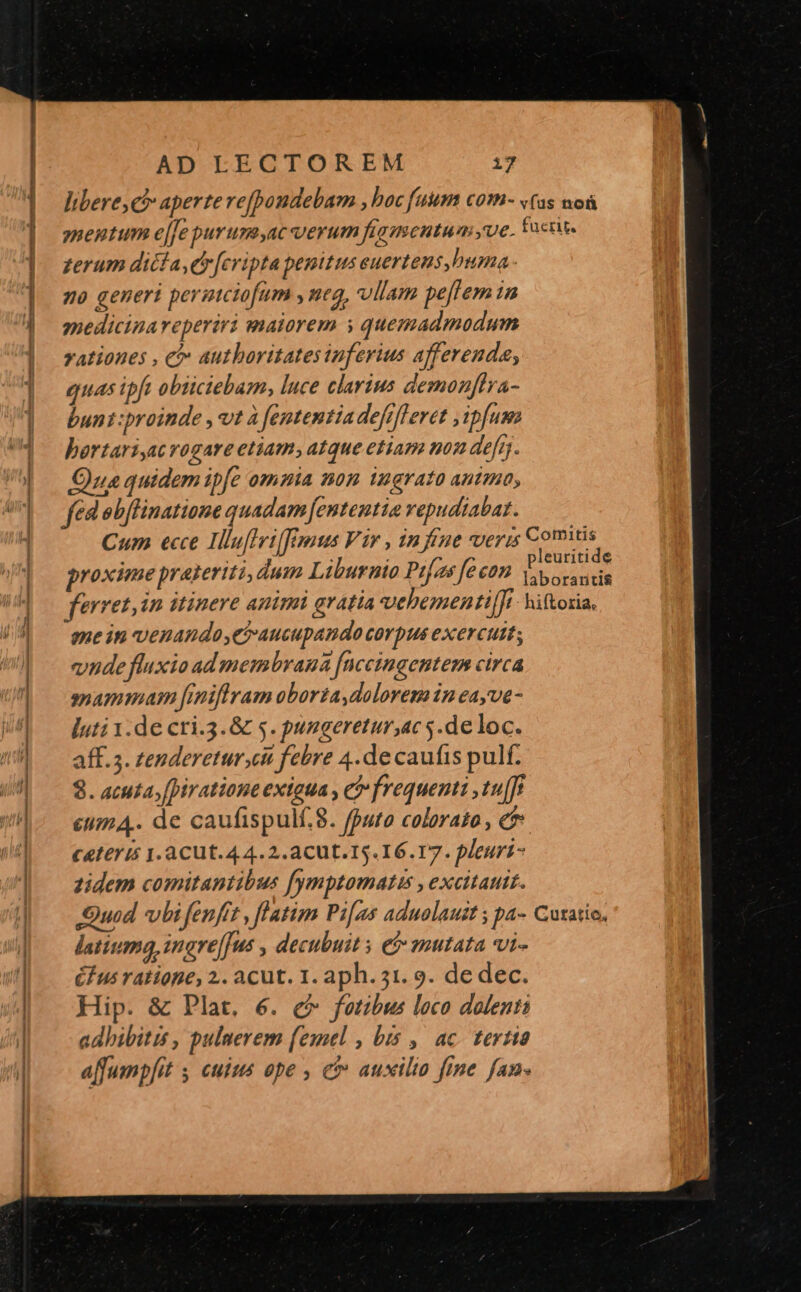 AD LECTOREM 17
libere, & aperte respondebam, hoc suum com-
mentum esse purum, ac verum figmentum, ve-
terum dicta, & scripta penitus euertens, huma-
no generi perniciosum, neq, vllam pestem in
medicina reperiri maiorem; quemadmodum
rationes, & authoritates inferius afferendæ,
quas ipsi obiiciebam, luce clarius demonstra-
bunt: proinde, vt à sententia desisteret, ipsum
hortari, ac rogare etiam, atque etiam non desij.
Quæ quidem ipse omnia non ingrato animo,
sed obstinatione quadam sententia repudiabat.
Cum ecce Illustrissimus Vir, in fine veris
proxime præteriti, dum Liburnio Pisas se con
ferret, in itinere animi gratia vehementissi-
me in venando, & aucupando corpus exercuit;
vnde fluxio ad membranā succingentem circa
mammam sinistram oborta, dolorem in ea, ve-
luti 1. de cri. 3. & 5. pungeretur, ac 5. de loc.
aff. 3. tenderetur, cū febre 4. de causis puls.
8. acuta, spiratione exigua, & frequenti, tussi
cum 4. de causis puls. 8. sputo colorato, &
cæteris 1. acut. 44. 2. acut. 15. 16. 17. pleuri-
tidem comitantibus symptomatis, excitauit.
Quod vbi sensit, statim Pisas aduolauit; pa-
latiumq, ingressus, decubuit; & mutata vi-
ctus ratione, 2. acut. 1. aph. 31. 9. de dec.
Hip. & Plat. 6. & fotibus loco dolenti
adhibitis, puluerem semel, bis, ac tertio
assumpsit; cuius ope, & auxilio sine san-
vsus noñ
fuerit.
Comitis
pleuritide
laborantis
historia.
Curatio.